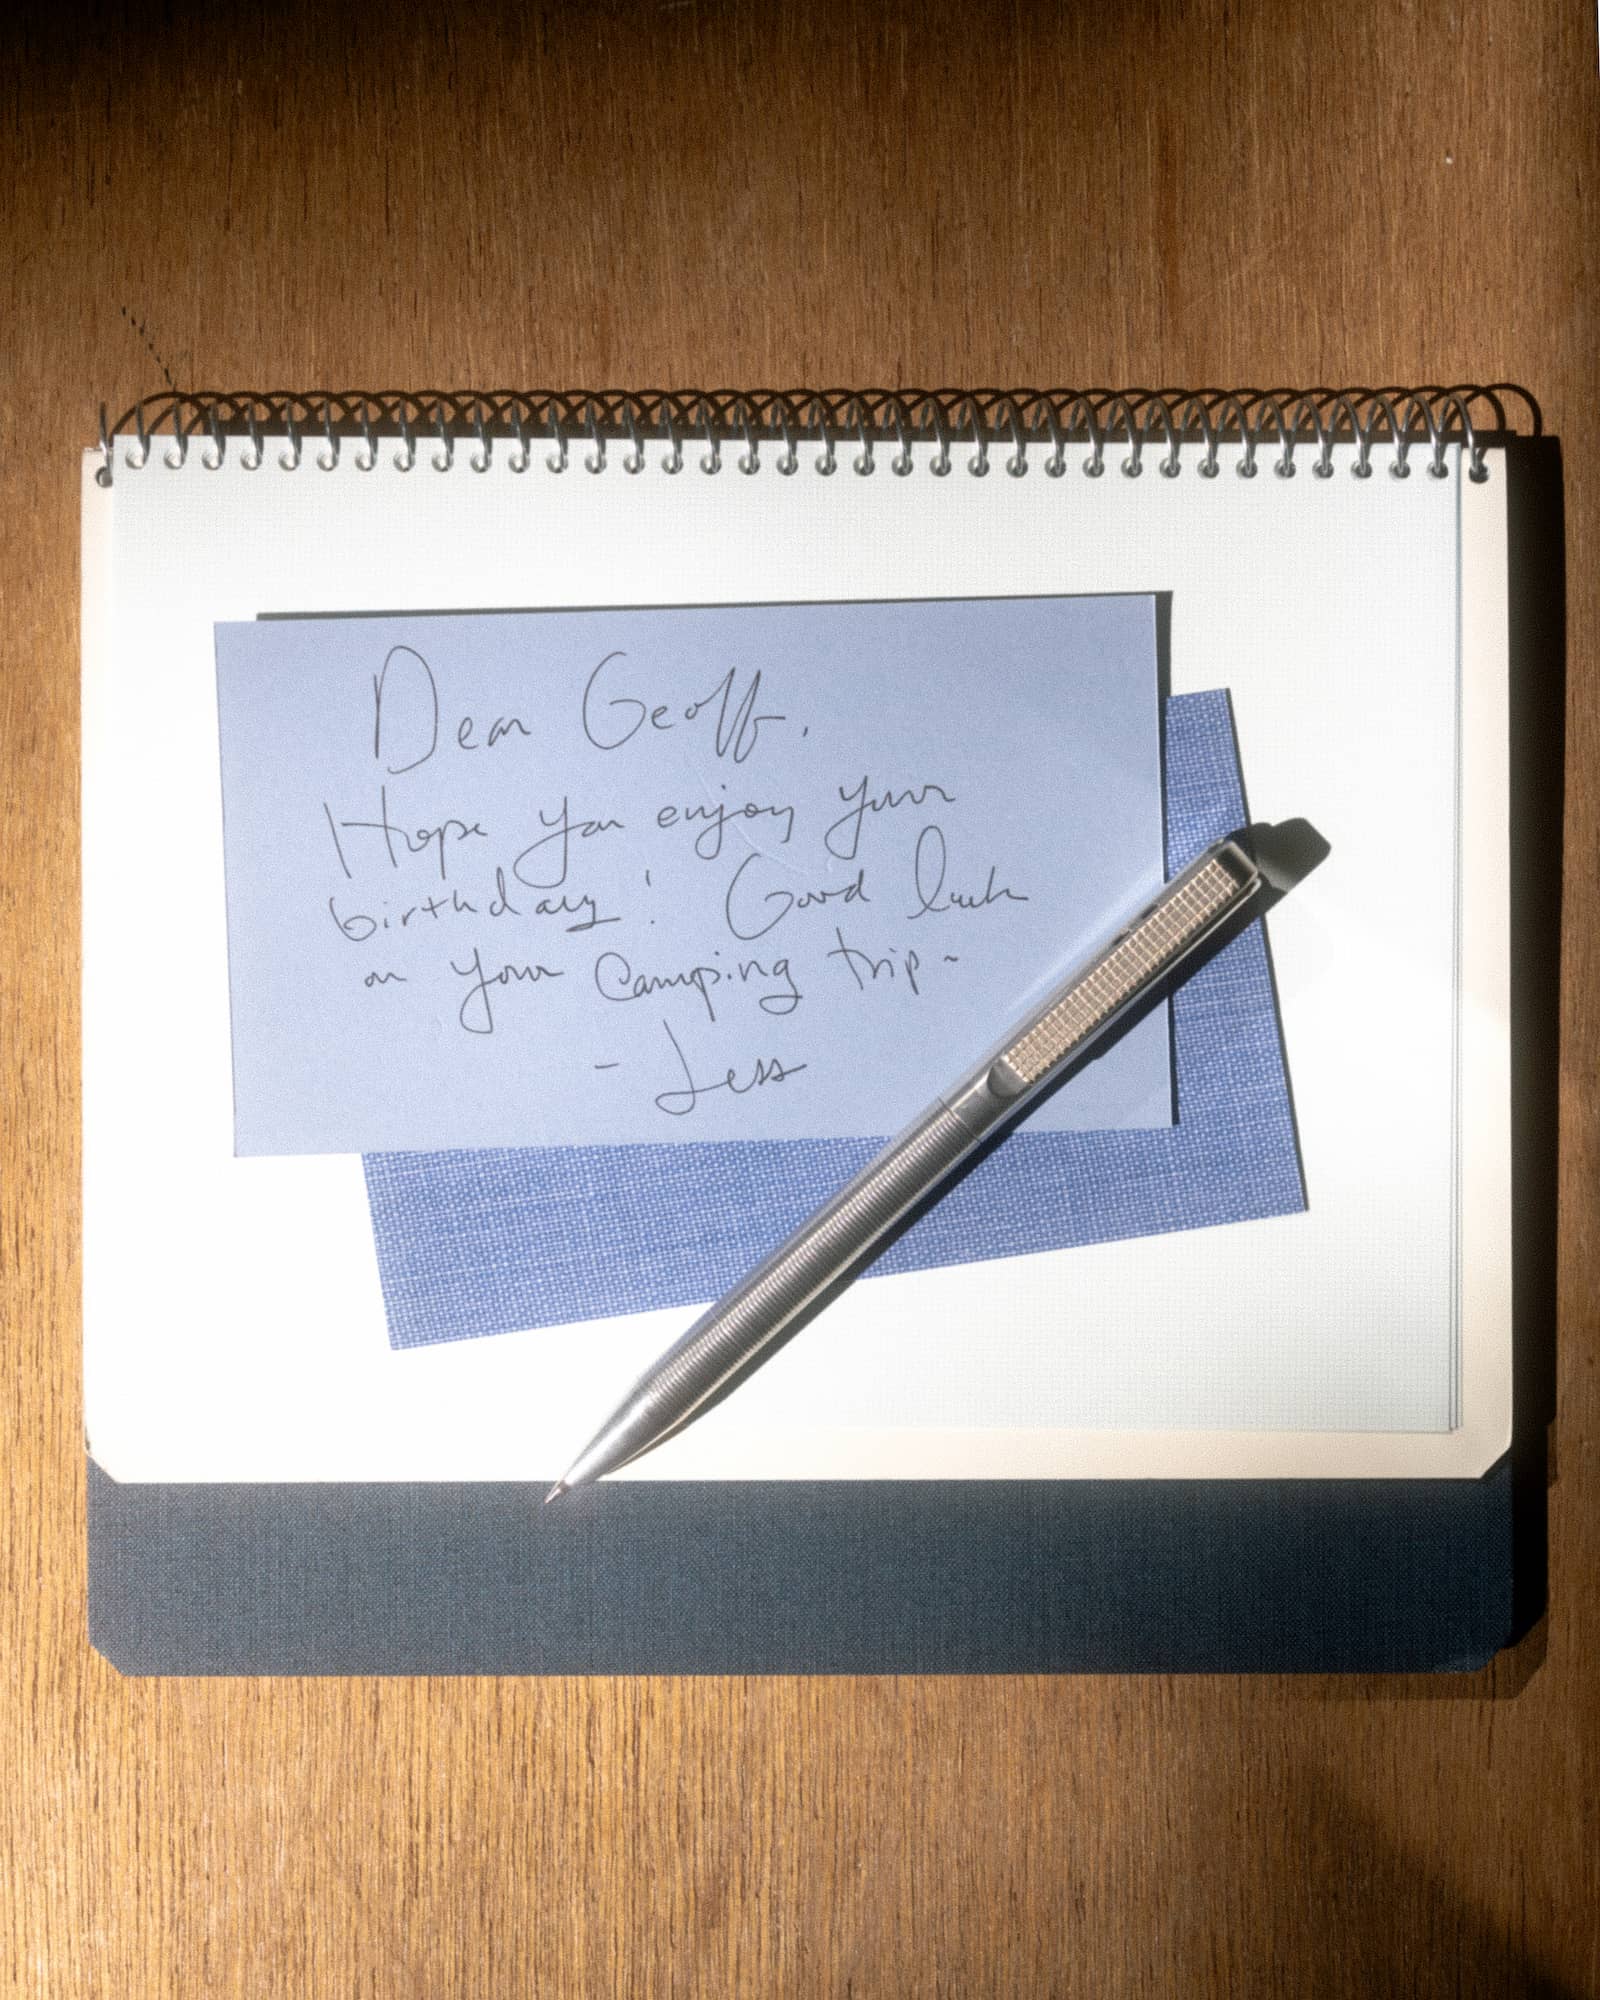 Dear Geoff,
Hope you enjoy your
birthday! Good luck
on your camping trip-
- Jess